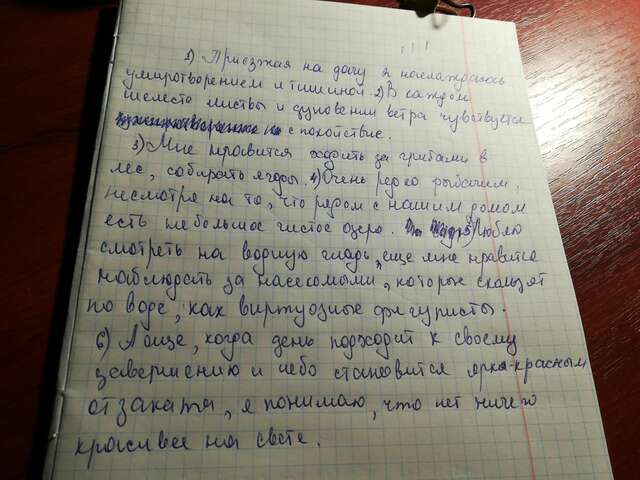 1) Приезжая на дачу я наслаждаюсь
умиротворением и тишиной. 2) В каждом
шелесте листвы и дуновении ветра чувствуется
спокойствие.
3) Мне нравится ходить за грибами в
лес, собирать ягоды. 4) Очень редко рыбачим,
несмотря на то, что рядом с нашим домом
есть небольшое чистое озеро. 5) Люблю
смотреть на водную гладь, еще мне нравится
наблюдать за насекомыми, которые скользят
по воде, как виртуозные фигуристы.
6) А още, когда день подходит к своему
завершению и небо становится ярко-красным
от заката, я понимаю, что нет ничего
красивее на свете.